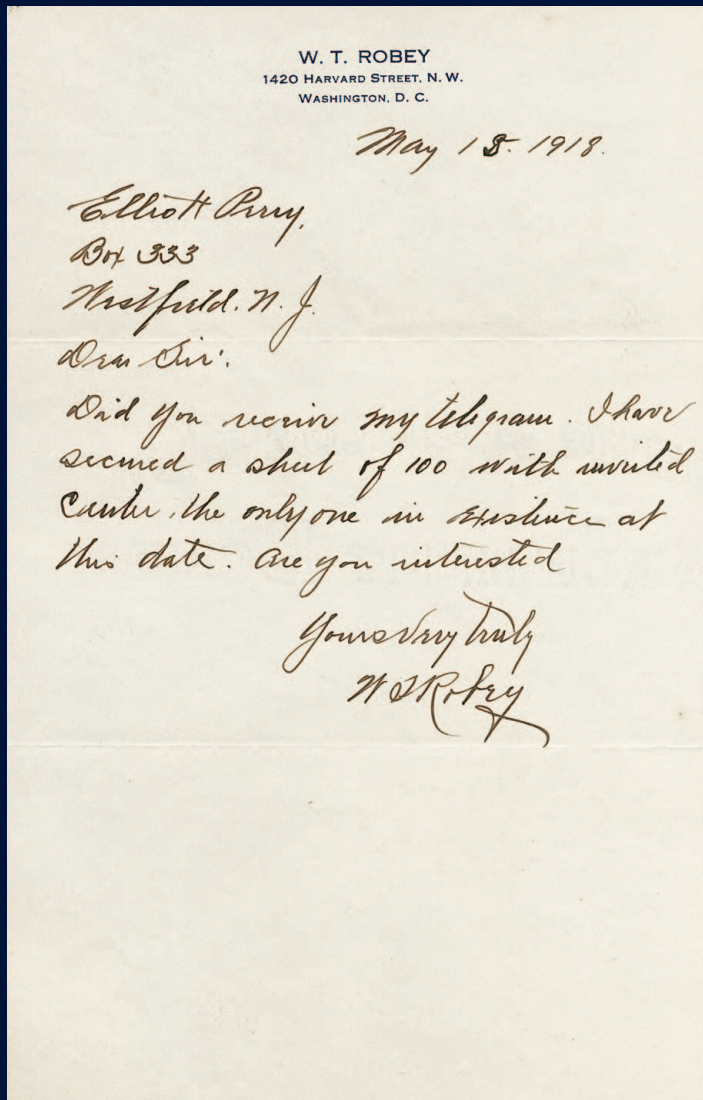 W. T. ROBEY
1420 HARVARD STREET, N. W.
WASHINGTON, D. C.
May 15. 1918.
Elliott Perry,
Box 333
Westfield. N. J.
Dear Sir:
Did you receive my telegram. I have
secured a sheet of 100 with inverted
Center, the only one in existence at
this date. Are you interested
Yours Very Truly
W T Robey